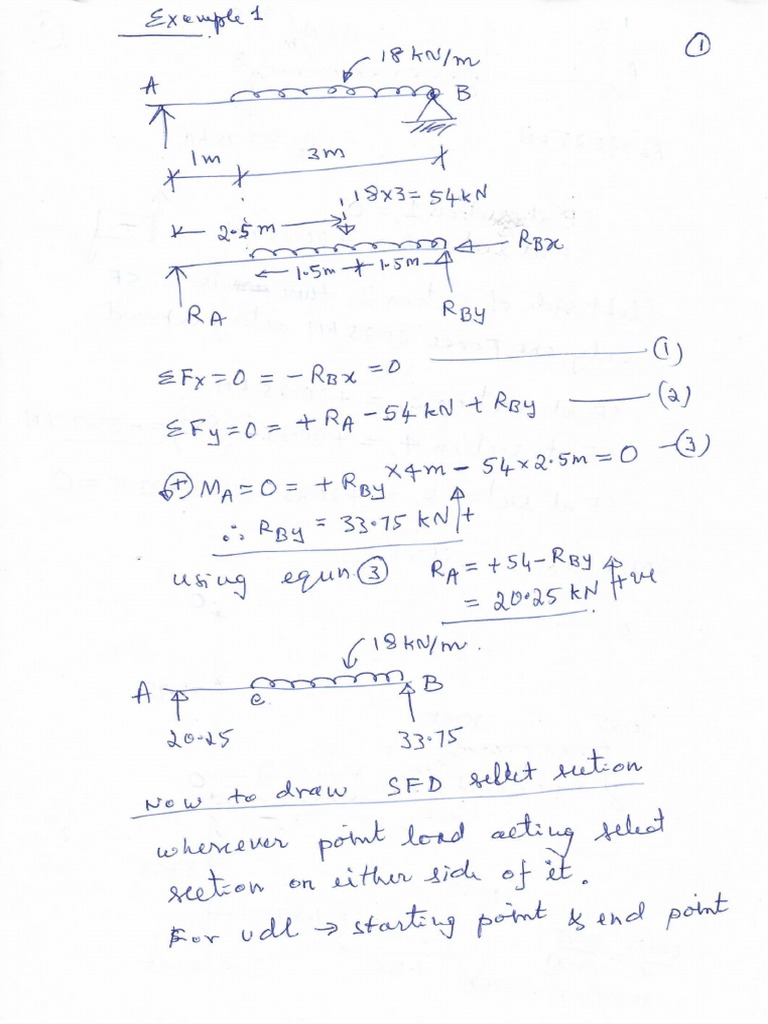 Example 1
①
18 kN/m
A
B
1m
3m
18×3 = 54 kN
2.5m
RBx
1.5m
1.5m
RA
RBY
ΣFx = 0 = - RBx = 0 (1)
ΣFy = 0 = + RA - 54 kN + RBY (2)
+ MA = 0 = + RBY × 4m - 54 × 2.5m = 0 - (3)
∴ RBY = 33.75 kN ↑+
using equn. ③ RA = +54 - RBY
= 20.25 kN ↑+ve
18 kN/m.
A
c
B
20.25
33.75
Now to draw SFD sellect section
wherever point load acting select
section on either side of it.
For udl → starting point & end point